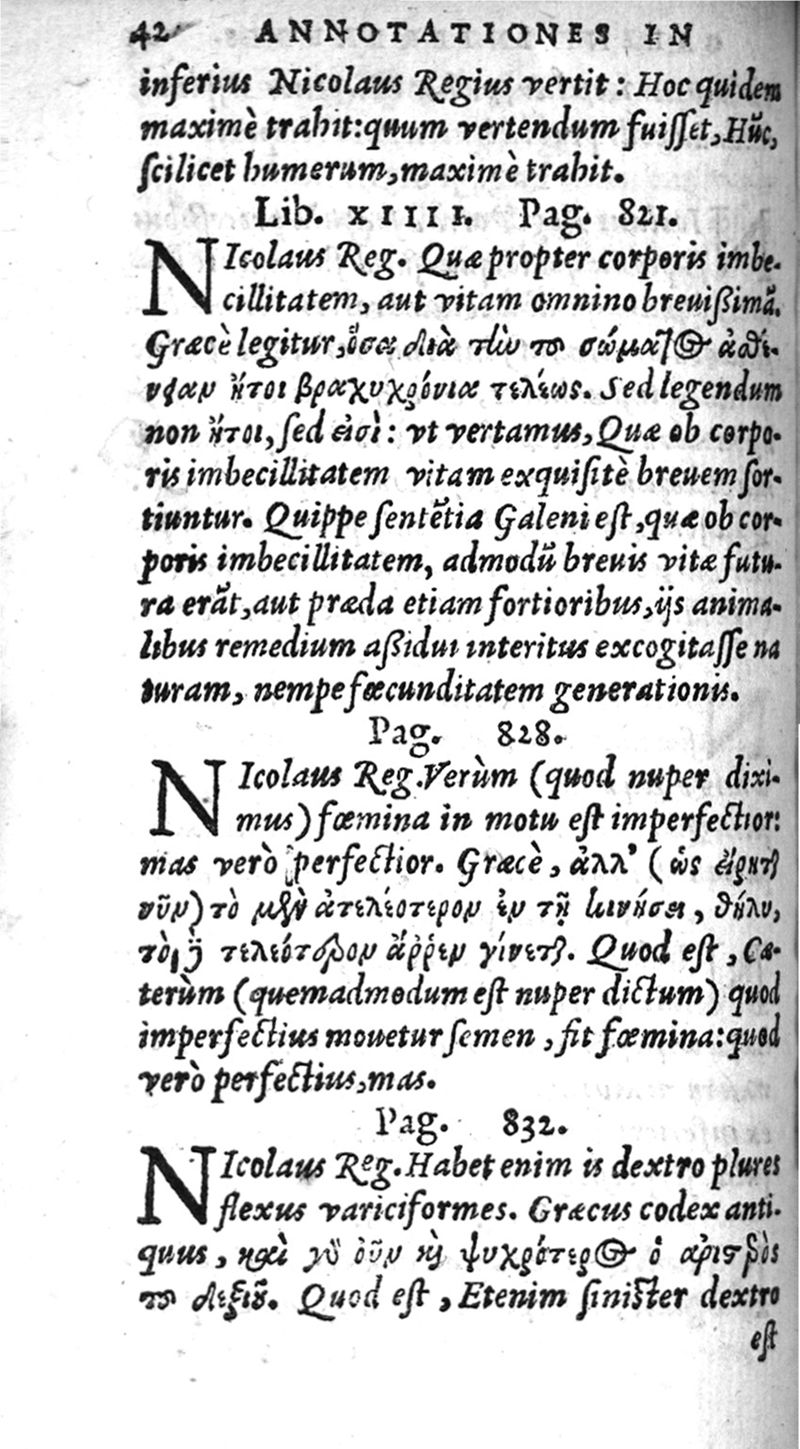 42 ANNOTATIONES IN
inferius Nicolaus Regius vertit: Hoc quidem
maximè trahit: quum vertendum fuisset, Hūc,
scilicet humerum, maximè trahit.
Lib. XIIII. Pag. 821.
NIcolaus Reg. Quæ propter corporis imbe-
cillitatem, aut vitam omnino breuissimā.
Græcè legitur, ὅσα διὰ τὴν τοῦ σώματος ἀσθέ-
νειαν ἤτοι βραχυχρόνια τελέως. Sed legendum
non ἤτοι, sed εἰσὶ: vt vertamus, Quæ ob corpo-
ris imbecillitatem vitam exquisitè breuem sor-
tiuntur. Quippe sentētia Galeni est, quæ ob cor-
poris imbecillitatem, admodū breuis vitæ futu-
ra erāt, aut præda etiam fortioribus, ijs anima-
libus remedium assidui interitus excogitasse na
turam, nempe fœcunditatem generationis.
Pag. 828.
NIcolaus Reg. Verùm (quod nuper dixi-
mus) fœmina in motu est imperfectior:
mas verò perfectior. Græcè, ἀλλ' (ὡς εἴρηται
νῦν) τὸ μὲν ἀτελέστερον ἐν τῇ κινήσει, θῆλυ,
τὸ δὲ τελεότερον ἄῤῥεν γίνεται. Quod est, Cæ-
terùm (quemadmodum est nuper dictum) quod
imperfectius mouetur semen, fit fœmina: quod
verò perfectius, mas.
Pag. 832.
NIcolaus Reg. Habet enim is dextro plures
flexus variciformes. Græcus codex anti-
quus, καὶ γὰρ οὖν καὶ ψυχρότερος ὁ ἀριστερὸς
τοῦ δεξιοῦ. Quod est, Etenim sinister dextro
est